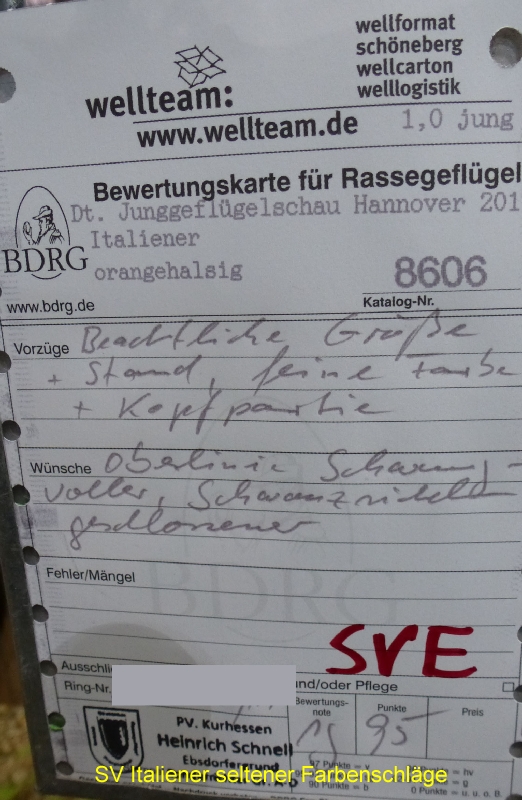 wellformat
schöneberg
wellcarton
welllogistik
wellteam:
www.wellteam.de
1,0 jung
Bewertungskarte für Rassegeflügel
Dt. Junggeflügelschau Hannover 201
Italiener
orangehalsig
BDRG
8606
www.bdrg.de
Katalog-Nr.
Vorzüge Beachtliche Größe
+ Stand, feine Farbe
+ Kopfpartie
Wünsche Oberlinie Schwung-
voller, Schwanzwinkel
geschlossener
Fehler/Mängel
BDRG
SVE
Ausschl
Ring-Nr.
und/oder Pflege
Bewertungs-
note
Punkte
Preis
95
PV. Kurhessen
Heinrich Schnell
Ebsdorfergrund
97 Punkte = v
= hv
= g
90 Punkte = b
0 Punkte = u. u. o. B.
SV Italiener seltener Farbenschläge